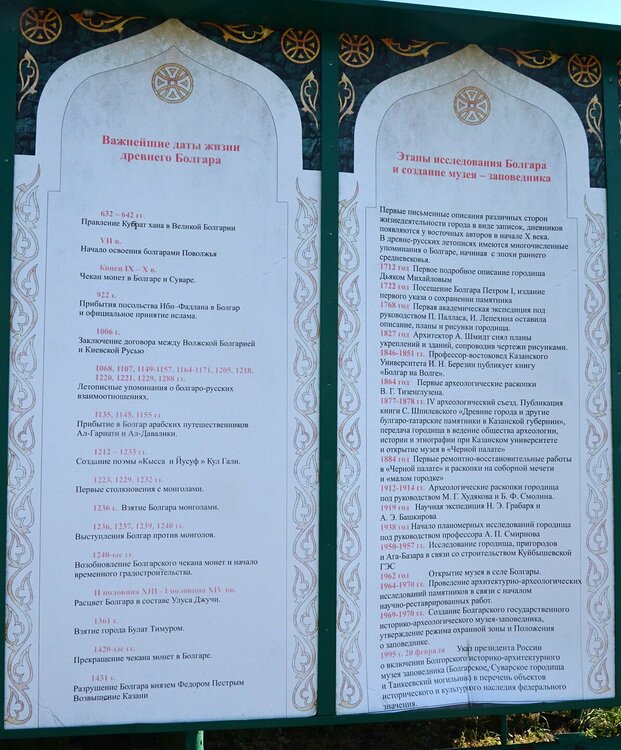 Важнейшие даты жизни
древнего Болгара
632 – 642 гг.
Правление Кубрат хана в Великой Болгарии
VII в.
Начало освоения болгарами Поволжья
Конец IX – X в.
Чекан монет в Болгаре и Суваре.
922 г.
Прибытия посольства Ибн-Фадлана в Болгар
и официальное принятие ислама.
1006 г.
Заключение договора между Волжской Болгарией
и Киевской Русью
1068, 1107, 1149-1157, 1164-1171, 1205, 1218,
1220, 1221, 1229, 1288 гг.
Летописные упоминания о болгаро-русских
взаимоотношениях.
1135, 1145, 1155 гг
Прибытие в Болгар арабских путешественников
Ал-Гарнати и Ал-Давалики.
1212 – 1233 гг.
Создание поэмы «Кысса и Йусуф » Кул Гали.
1223, 1229, 1232 гг.
Первые столкновения с монголами.
1236 г. Взятие Болгара монголами.
1236, 1237, 1239, 1240 гг.
Выступления Болгар против монголов.
1240-ые гг.
Возобновление Болгарского чекана монет и начало
временного градостроительства.
II половина XIII - I половина XIV вв.
Расцвет Болгара в составе Улуса Джучи.
1361 г.
Взятие города Булат Тимуром.
1420-ые гг.
Прекращение чекана монет в Болгаре.
1431 г.
Разрушение Болгара князем Федором Пестрым
Возвышение Казани
Этапы исследования Болгара
и создание музея – заповедника
Первые письменные описания различных сторон
жизнедеятельности города в виде записок, дневников
появляются у восточных авторов в начале X века.
В древне-русских летописях имеются многочисленные
упоминания о Болгаре, начиная с эпохи раннего
средневековья.
1712 год Первое подробное описание городища
Дьяком Михайловым
1722 год Посещение Болгара Петром I, издание
первого указа о сохранении памятника
1768 год Первая академическая экспедиция под
руководством П. Палласа, И. Лепехина оставила
описание, планы и рисунки городища.
1827 год Архитектор А. Шмидт снял планы
укреплений и зданий, сопроводив чертежи рисунками.
1846-1851 гг. Профессор-востоковед Казанского
Университета И. Н. Березин публикует книгу
«Болгар на Волге».
1864 год Первые археологические раскопки
В. Г. Тизенглузена.
1877-1878 гг. IV археологический съезд. Публикация
книги С. Шпилевского «Древние города и другие
булгаро-татарские памятники в Казанской губернии»,
передача городища в ведение общества археологии,
истории и этнографии при Казанском университете
и открытие музея в «Черной палате»
1884 год Первые ремонтно-восстановительные работы
в «Черной палате» и раскопки на соборной мечети
и «малом городке»
1912-1914 гг. Археологические раскопки городища
под руководством М. Г. Худякова и Б. Ф. Смолина.
1919 год Научная экспедиция Н. Э. Грабаря и
А. Э. Башкирова
1938 год Начало планомерных исследований городища
под руководством профессора А. П. Смирнова
1950-1957 гг. Исследование городища, пригородов
и Ага-Базара в связи со строительством Куйбышевской
ГЭС
1962 год Открытие музея в селе Болгары.
1964-1970 гг. Проведение архитектурно-археологических
исследований памятников в связи с началом
научно-реставрированных работ.
1969-1970 гг. Создание Болгарского государственного
историко-археологического музея-заповедника,
утверждение режима охранной зоны и Положения
о заповеднике.
1995 г. 20 февраля Указ президента России
о включении Болгорского историко-архитектурного
музея заповедника (Болгарское, Суварское городища
и Танкеевский могильник) в перечень объектов
исторического и культурного наследия федерального
значения.